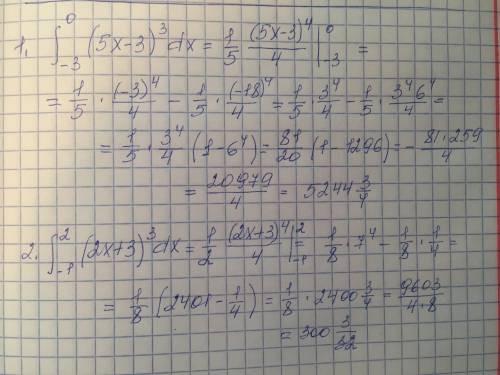 1. ∫₋₃⁰ (5x-3)³ dx = 1/5 (5x-3)⁴/4 |₋₃⁰ =
= 1/5 · (-3)⁴/4 - 1/5 · (-18)⁴/4 = 1/5 · 3⁴/4 - 1/5 · 3⁴6⁴/4 =
= 1/5 · 3⁴/4 (1-6⁴) = 81/20 (1-1296) = - 81·259/4
= 20979/4 = 5244 3/4
2. ∫₋₁² (2x+3)³ dx = 1/2 (2x+3)⁴/4 |₋₁² = 1/8 · 7⁴ - 1/8 · 1/4 =
= 1/8 (2401 - 1/4) = 1/8 · 2400 3/4 = 9603/4·8
= 300 3/32